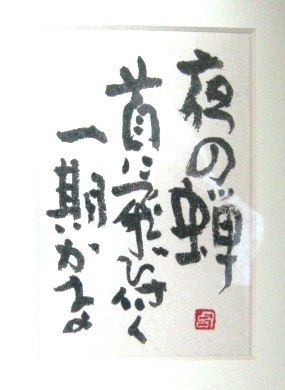 夜の蝉
首に飛び付く
一期かな